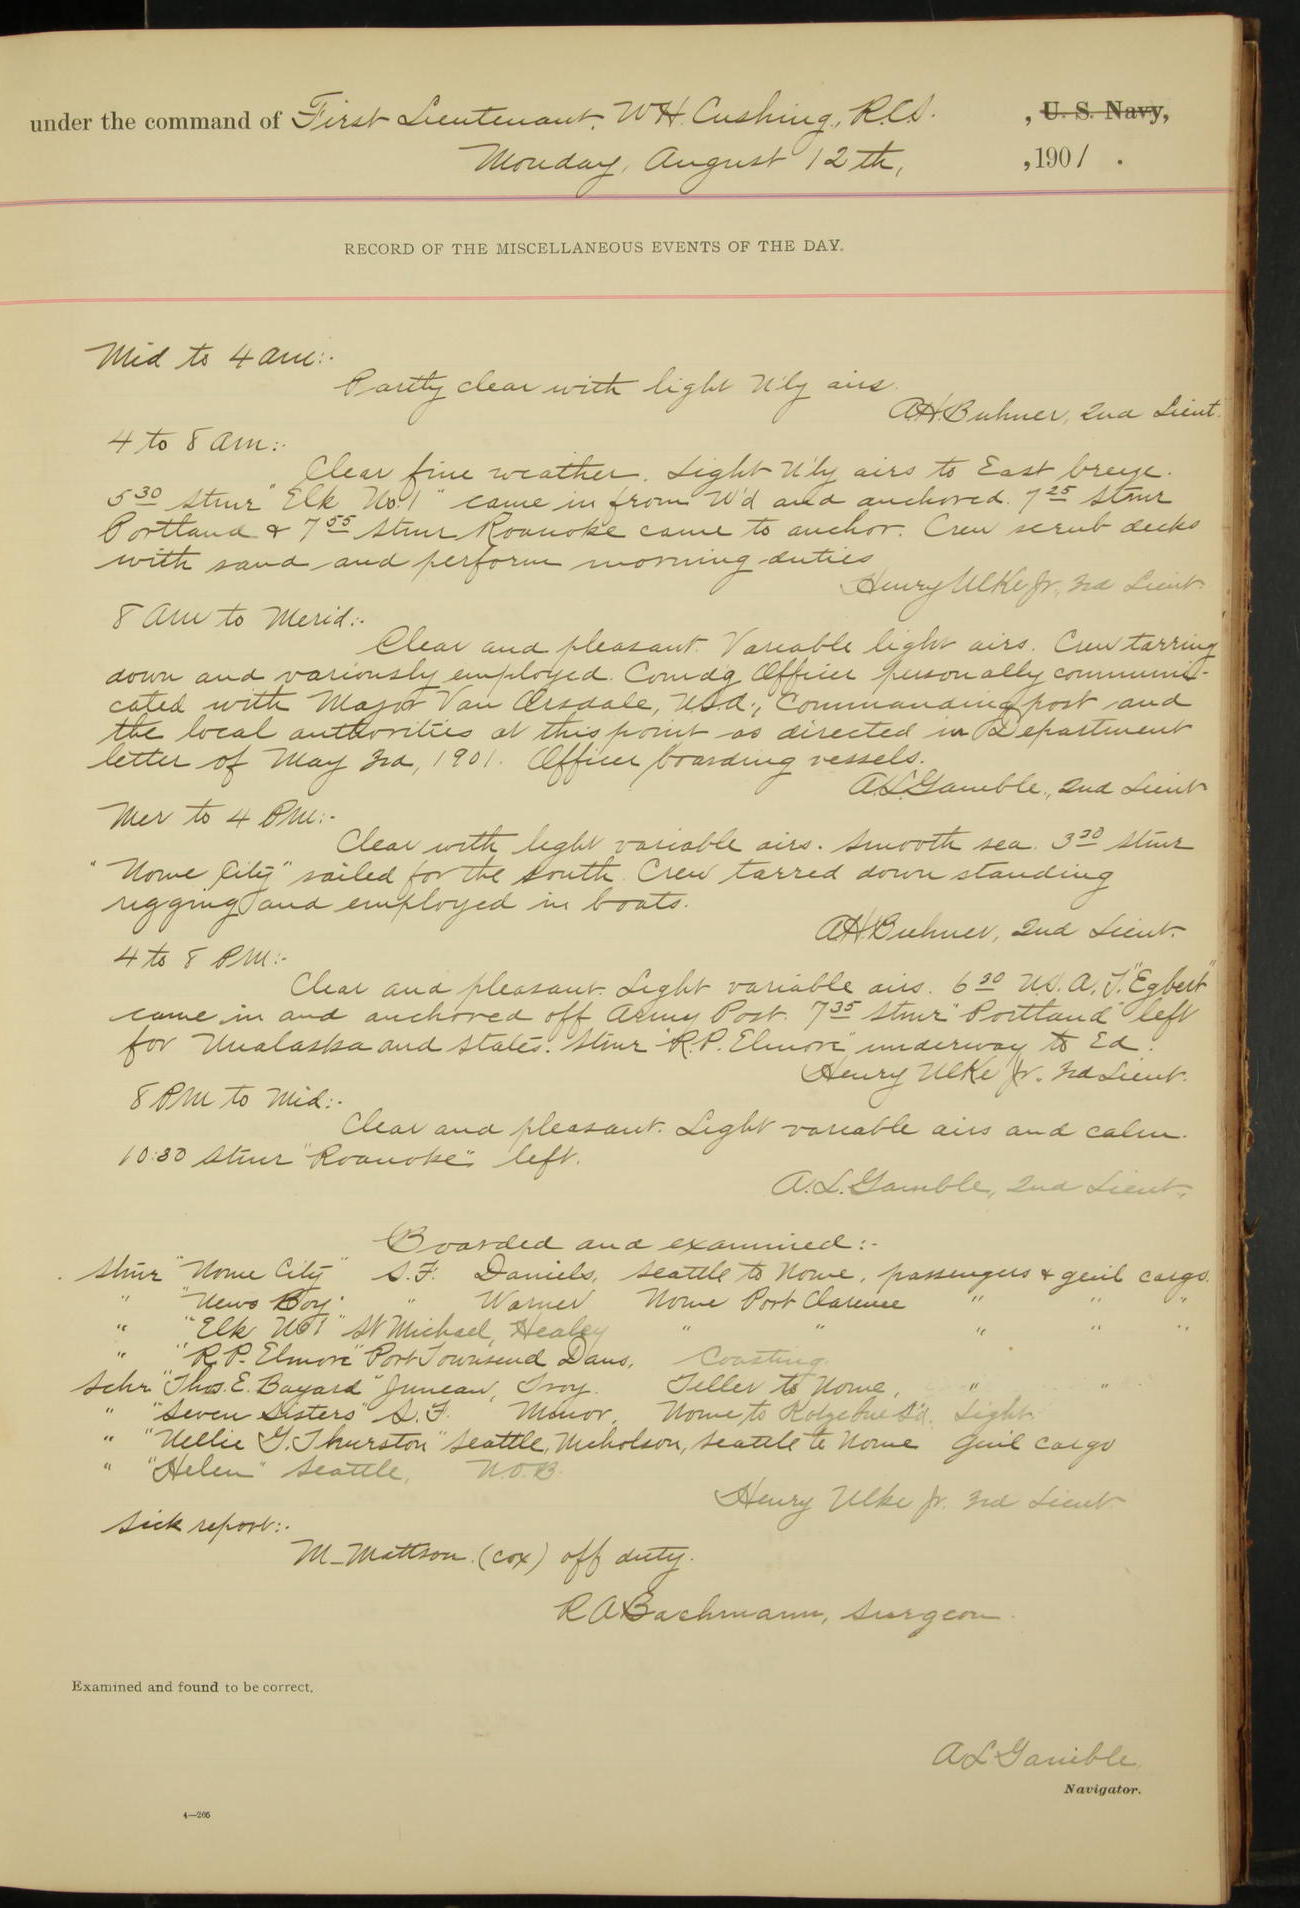 under the command of First Lieutenant, W H. Cushing, R.C.S. , U. S. Navy,
Monday, August 12th, , 1901 .
RECORD OF THE MISCELLANEOUS EVENTS OF THE DAY.
Mid to 4 am:-
Partly clear with light N'ly airs.
A.H. Buhner, 2nd Lieut.
4 to 8 am:-
Clear fine weather. Light N'ly airs to East breeze.
5 30 Stmr "Elk No. 1" came in from W'd and anchored. 7 25 Stmr
Portland & 7 55 Stmr Roanoke came to anchor. Crew scrub decks
with sand and perform morning duties
Henry Ulke Jr., 3rd Lieut.
8 Am to Merid:-
Clear and pleasant. Variable light airs. Crew tarring
down and variously employed. Comd'g Officer personally communi-
cated with Major Van Orsdale, U.S.A., Commanding post and
the local authorities at this point as directed in Department
letter of May 3rd, 1901. Officer boarding vessels.
A.L. Gamble, 2nd Lieut
Mer to 4 PM:-
Clear with light variable airs. Smooth sea. 3 30 Stmr
"Nome City" sailed for the South. Crew tarred down standing
rigging and employed in boats.
A.H. Buhner, 2nd Lieut.
4 to 8 PM:-
Clear and pleasant. Light variable airs. 6 30 U.S.A.T. "Egbert"
came in and anchored off Army Post. 7 35 Stmr "Portland" left
for Unalaska and States. Stmr "R.P. Elmore" underway to Ed.
Henry Ulke Jr. 3rd Lieut.
8 PM to Mid:-
Clear and pleasant. Light variable airs and calm.
10:30 Stmr "Roanoke" left.
A.L. Gamble, 2nd Lieut.
Boarded and examined:-
Stmr "Nome City" S.F. Daniels, Seattle to Nome, passengers & gen'l cargo.
" "News Boy" " Warner Nome Port Clarence " " "
" "Elk No 1" St Michael, Healey " " " " "
" "R.P. Elmore" Port Townsend Daus, Coasting.
Schr "Thos. E. Bayard" Juneau, Troy. Teller to Nome, " "
" "Seven Sisters" S.F. Minor, Nome to Kotzebue S'd. Light
" "Nellie G. Thurston" Seattle, Nicholson, Seattle to Nome gen'l cargo
" "Helen" Seattle, N.O.B.
Henry Ulke Jr. 3rd Lieut
Sick report:-
M. Mattson. (cox) off duty.
R A Bachmann, Surgeon.
Examined and found to be correct.
A L Gamble
Navigator.
4—205